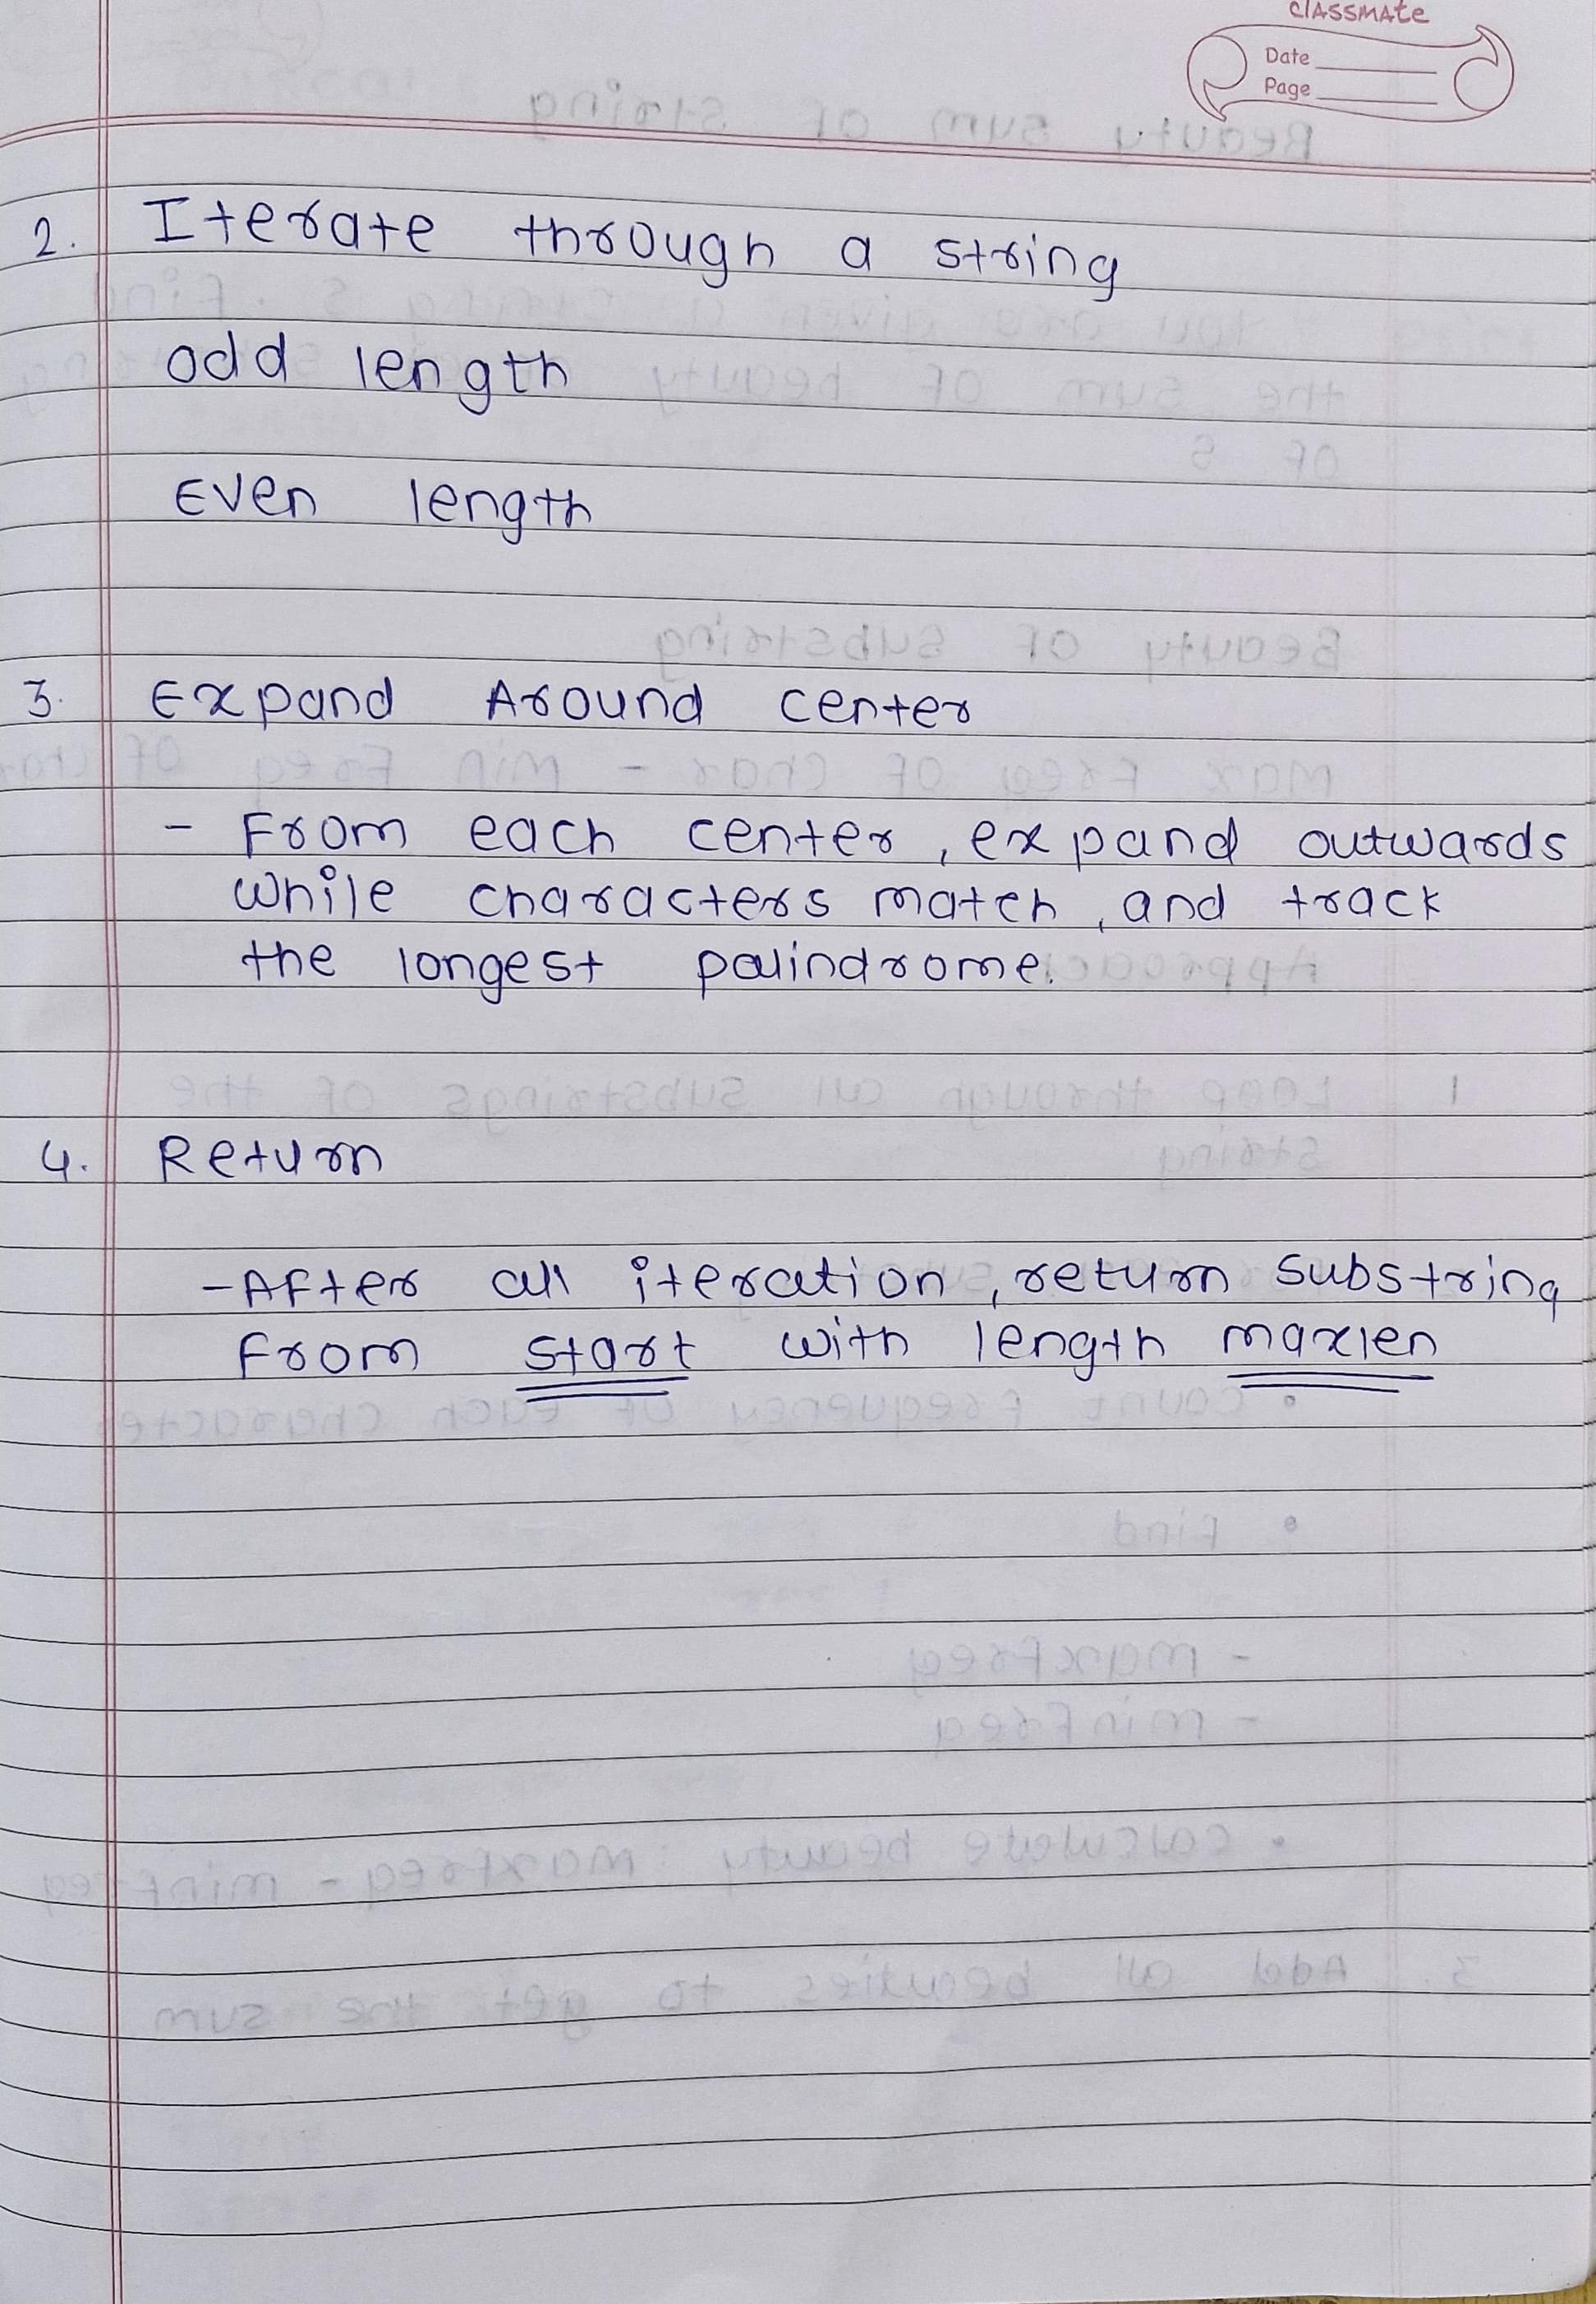 classmate
Date
Page
2. Iterate through a string
odd length
Even length
3. Expand Around center
- From each center, expand outwards
while characters match, and track
the longest palindrome.
4. Return
- After all iteration, return substring
from start with length maxlen